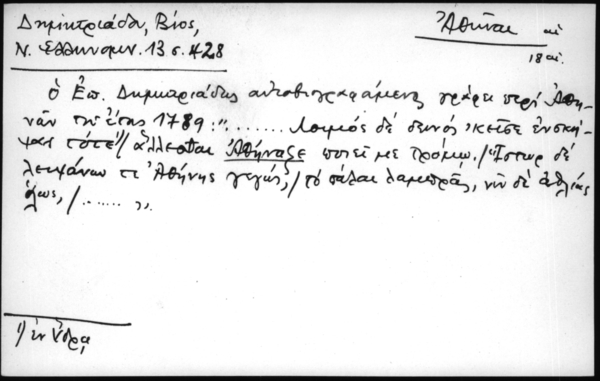 Δημητριάδα, Βίος,
Ν. Ἑλληνομν. 13 σ. 428
Ἀθῆναι αἱ
18 αἰ.
ὁ Ἐπ. Δημητριάδης αὐτοβιογραφούμενος γράφει περὶ Ἀθη-
νῶν τοῦ ἔτους 1789: "........ Λοιμὸς δὲ δεινὸς ἐκεῖσε ἐνσκή-
ψας τότε¹/
Ἀθήναζε ποιεῖ με τρόμῳ. /
λειψάνων τι Ἀθήνης γεγώς, / τὸ πάλαι λαμπρᾶς, νῦν δὲ ἀθλίας
ὅλως, / ...... ".
1/ ἐν Ὕδρᾳ,